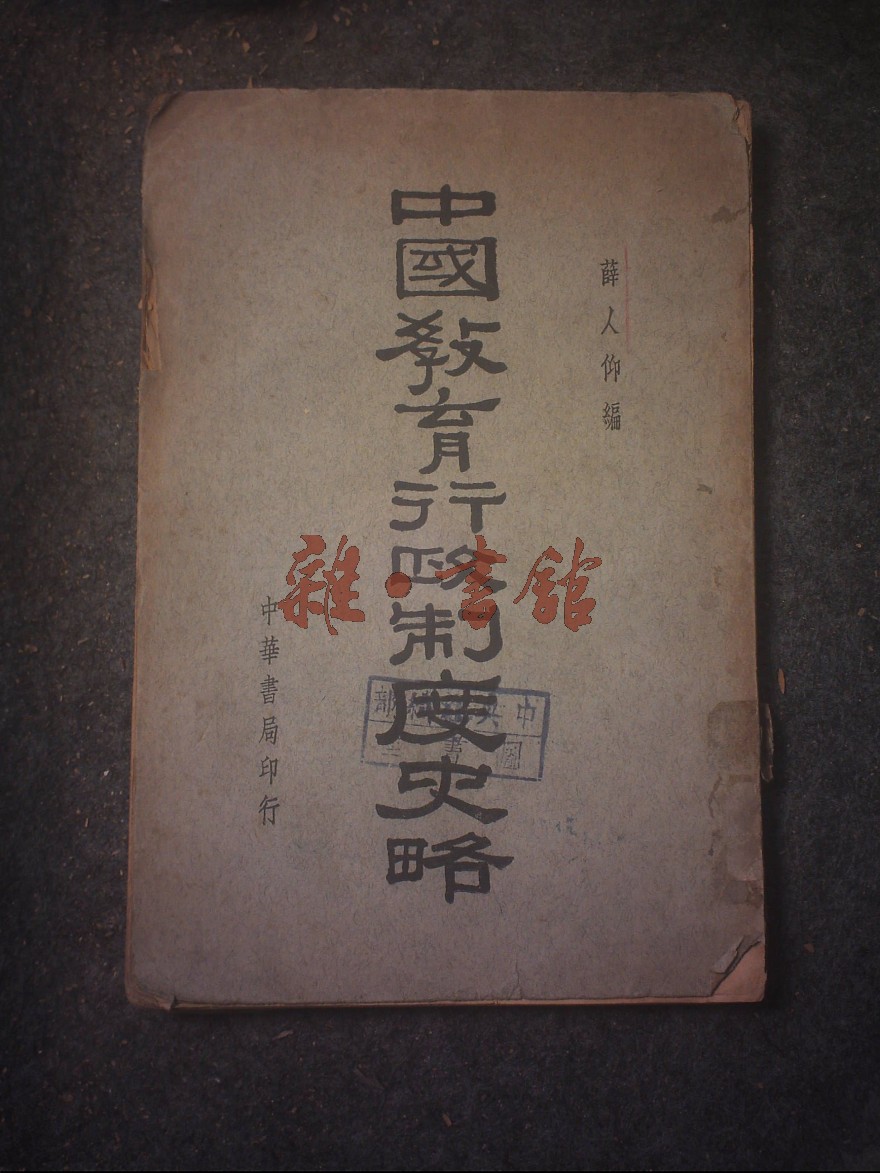 薛人仰編
中國教育行政制度史略
中華書局印行
雜·書館
中
部
圖書